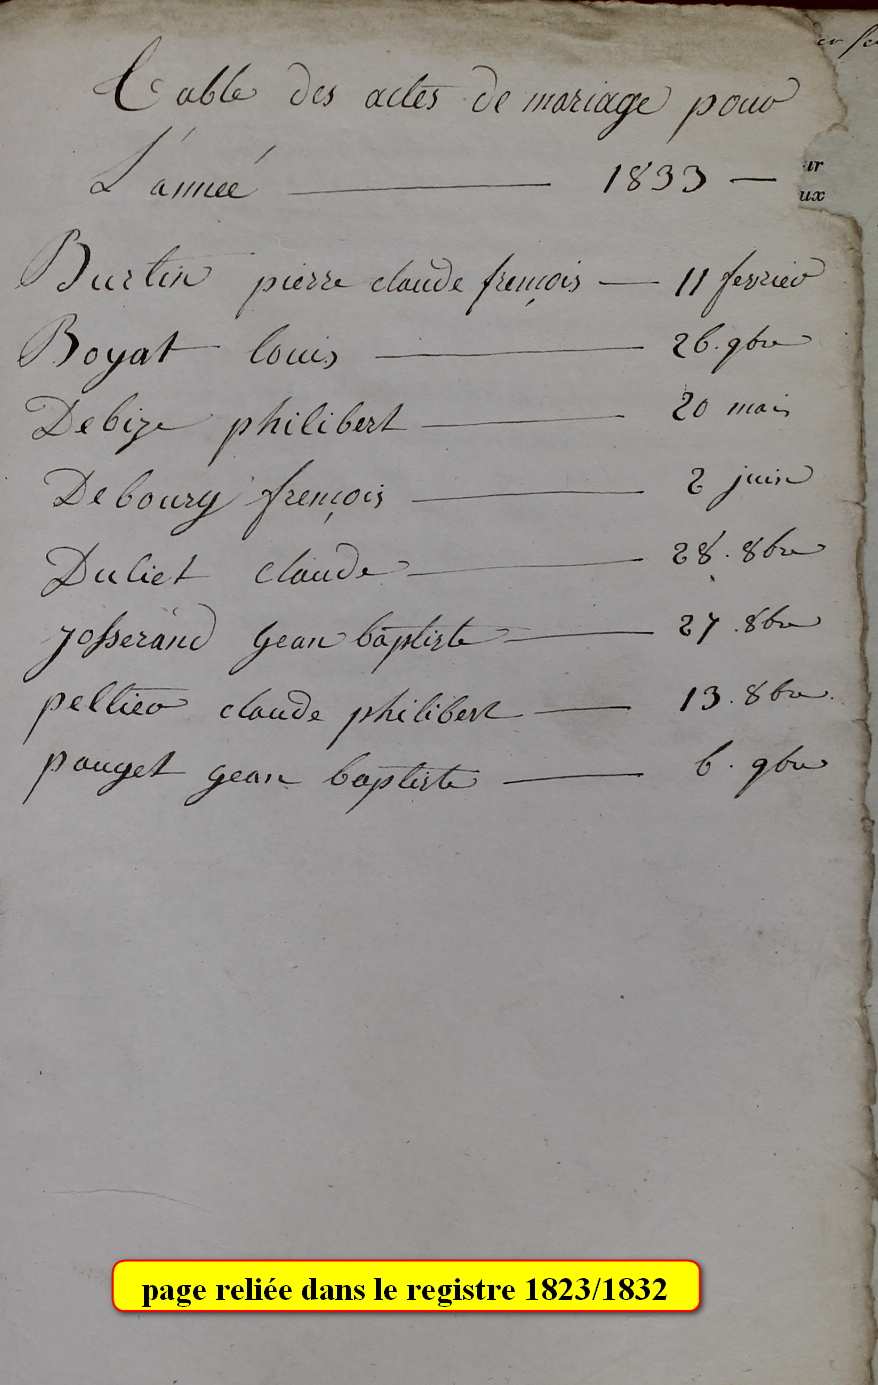 Table des actes de mariage pour
L'année — 1833 —
Burtin pierre claude françois — 11 fevrier
Boyat louis — 26. 9bre
Debize philibert — 20 mais
Debourg françois — 2 juin
Duliet claude — 28. 8bre
josserand gean baptiste — 27. 8bre
pellier claude philibert — 13. 8bre.
pouget gean baptiste — 6. 9bre
ur
ux
page reliée dans le registre 1823/1832